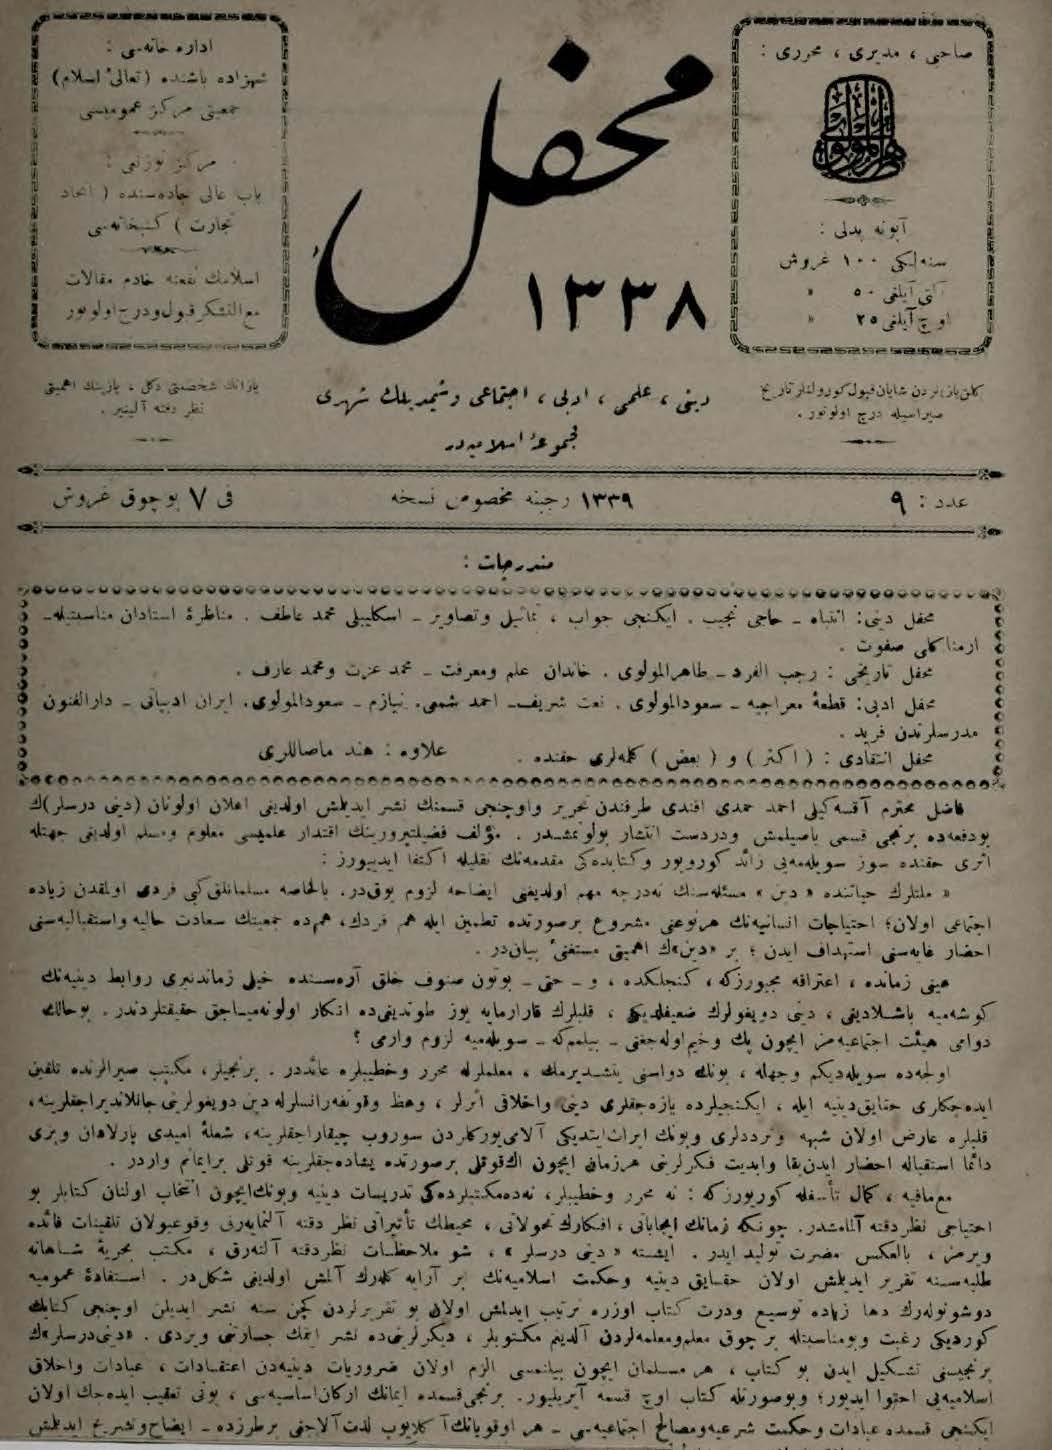 صاحبی ، مدیری ، محرری :
طاهرالمولوی
آبونه بدلی :
سنه‌لكی ۱۰۰ غروش
آلتی آیلغی ۵۰ »
اوچ آیلغی ۲۵ »
محفل
۱۳۳۸
اداره خانه‌سی :
شهزاده باشنده (تعالئ اسلام)
جمعیتی مركز عمومیسی
مركز توزیعی :
باب عالی جاده‌سنده ( اتحاد
تجارت ) كتبخانه‌سی
اسلامك نفعنه خادم مقالات
مع‌التشكر قبول و درج اولونور
كلن یازیلردن شایان قبول كورولنلر تاریخ
صیراسیله درج اولونور .
دینی ، علمی ، ادبی ، اجتماعی و شیمدیلك شهری
مجموعهٔ اسلامیه‌در
یازانك شخصیتی دكل ، یازینك اهمیتی
نظر دقته آلینیر .
عدد : ۹
۱۳۳۹ رجبنه مخصوص نسخه
فی ۷ بوچوق غروش
مندرجات :
محفل دینی: انتباه ـ حاجی نجیب . ایكنجی جواب ، تماثیل وتصاویر ـ اسكلیبلی محمد عاطف . مناظرهٔ استادان مناسبتیله ـ
ارمناكلی صفوت .
محفل تاریخی : رجب الفرد ـ طاهرالمولوی . خاندان علم ومعرفت ـ محمد عزت ومحمد عارف .
محفل ادبی: قطعهٔ معراجیه ـ سعودالمولوی . نعت شریف ـ احمد شمی . نیازم ـ سعودالمولوی . ایران ادبیاتی ـ دارالفنون
مدرسلرندن فرید .
محفل انتقادی : ( اكثر ) و ( بعض ) كلمه‌لری حقنده .
علاوه : هند ماصاللری
فاضل محترم آقسه‌كیلی احمد حمدی افندی طرفندن تحریر واوچنجی قسمنك نشر ایدیلمش اولدیغی اعلان اولونان (دینی درسلر)ك
بودفعه‌ده برنجی قسمی باصیلمش ودردست انتشار بولونمشدر . مؤلف فضیلتپرورینك اقتدار علمیسی معلوم ومسلم اولدیغی جهتله
اثری حقنده سوز سویله‌مه‌یی زائد كورویور وكتابده‌كی مقدمه‌نك نقلیله اكتفا ایدییورز :
« ملتلرك حیاتنده « دین » مسئله‌سنك نه‌درجه مهم اولدیغنی ایضاحه لزوم یوق‌در. بالخاصه مسلمانلق‌كبی فردی اولمقدن زیاده
اجتماعی اولان؛ احتیاجات انسانیه‌نك هرنوعنی مشروع برصورتده تطمین ایله هم فردك، هم‌ده جمعیتك سعادت حالیه واستقبالیه‌سنی
احضار غایه‌سنی استهداف ایدن ؛ بر «دین»ك اهمیتی مستغنئ بیان‌در .
عینی زمانده ، اعترافه مجبورزكه ، كنجلكده ، و ـ حتی ـ بوتون صنوف خلق آره‌سنده خیلی زماندنبری روابط دینیه‌نك
كوشه‌میه باشلادیغی ، دینی دویغولرك ضعیفلدیكی ، قلبلرك قارارمایه یوز طوتدیغی‌ده انكار اولونه‌میاجق حقیقتلردندر. بوحالك
دوامی هیئت اجتماعیه‌مز ایچون پك وخیم‌اوله‌جغنی ـ بیلمم‌كه ـ سویله‌میه لزوم وارمی ؟
اولجه‌ده سویله‌دیكم وجهله ، بونك دواسنی یتشدیرمك ، معلملرله محرر وخطیبلره عائددر . برنجیلر، مكتب صیرالرنده تلقین
ایده‌جكلری حقایق‌دینیه ایله ، ایكنجیلرده یازه‌جقلری دینی واخلاقی اثرلر ، وعظ وقونفه‌رانسلرله دین دویغولرینی جانلاندیراجقلرینه،
قلبلره عارض اولان شبهه وترددلری وبونك ایراث‌ایتدیكی آلام‌یوركلردن سوروب چیقاراجقلرینه، شعلهٔ امیدی پارلاه‌ان وبزی
دائما استقباله احضار ایدن‌بقا وابدیت فكرلرینی هرزمان ایچون اك‌قوتلی برصورتده یشاده‌جقلرینه قوتلی برایمانم واردر .
مع‌مافیه ، كمال تأسفله كورییورزكه : نه محرر وخطیبلر، نه‌ده‌مكتبلرده‌كی تدریسات دینیه وبونك‌ایچون انتخاب اولنان كتابلر بو
احتیاجی نظردقته آلمامشدر. چونكه زمانك ایجاباتی ، افكارك تحولاتی ، محیطك تأثیراتی نظر دقته آلنمایه‌رق وقوعبولان تلقینات فائده
ویرمز ، بالعكس مضرت تولیدایدر. ایشته « دینی درسلر » ، شو ملاحظات نظردقته آلنه‌رق ، مكتب بحریهٔ شاهانه
طلبه‌سنه تقریر ایدیلمش اولان حقایق دینیه وحكمت اسلامیه‌نك بر آرایه كله‌رك آلمش اولدیغی شكل‌در . استفادهٔ عمومیه
دوشونوله‌رك دها زیاده توسیع ودرت كتاب اوزره ترتیب ایدلمش اولان بو تقریرلردن كچن سنه نشر ایدیلن اوچنجی كتابك
كوردیكی رغبت وبومناسبتله بر چوق معلم‌ومعلمه‌لردن آلدیغم مكتوبلر ، دیكرلرینی‌ده نشر ایتمك جسارتنی ویردی . «دینی‌درسلر»ك
برنجیسنی تشكیل ایدن بو كتاب ، هر مسلمان ایچون بیلنمسی الزم اولان ضروریات دینیه‌دن اعتقادات ، عبادات واخلاق
اسلامیه‌یی احتوا ایدیور؛ وبوصورتله كتاب اوچ قسمه آیریلیور. برنجی‌قسمده ایمانك اركان‌اساسیه‌سی ، بونی تعقیب ایده‌جك اولان
ایكنجی قسمده عبادات وحكمت شرعیه‌ومصالح اجتماعیه‌سی ـ هر اوقویانك‌آ كلایوب لذت‌آلاجغی برطرزده ـ ایضاح‌وتشریح ایدیلمش